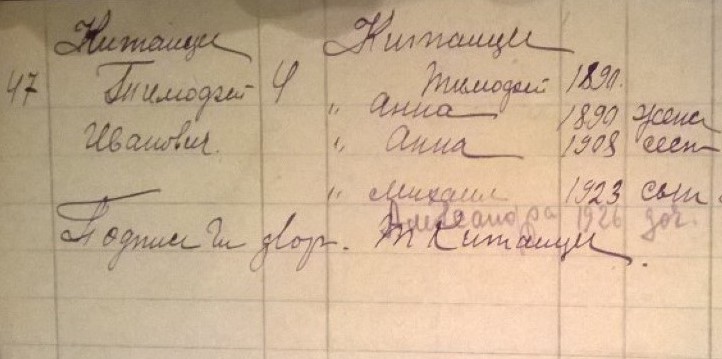 Китаицы Китаицы
47 Тимофей 4 Тимофей 1890.
" Анна 1890 жена
Иванович. " Анна 1908 сест
" Михаил 1923 сын.
Александра 1926 доч.
Подписи Чл двор. Т Китаицы.